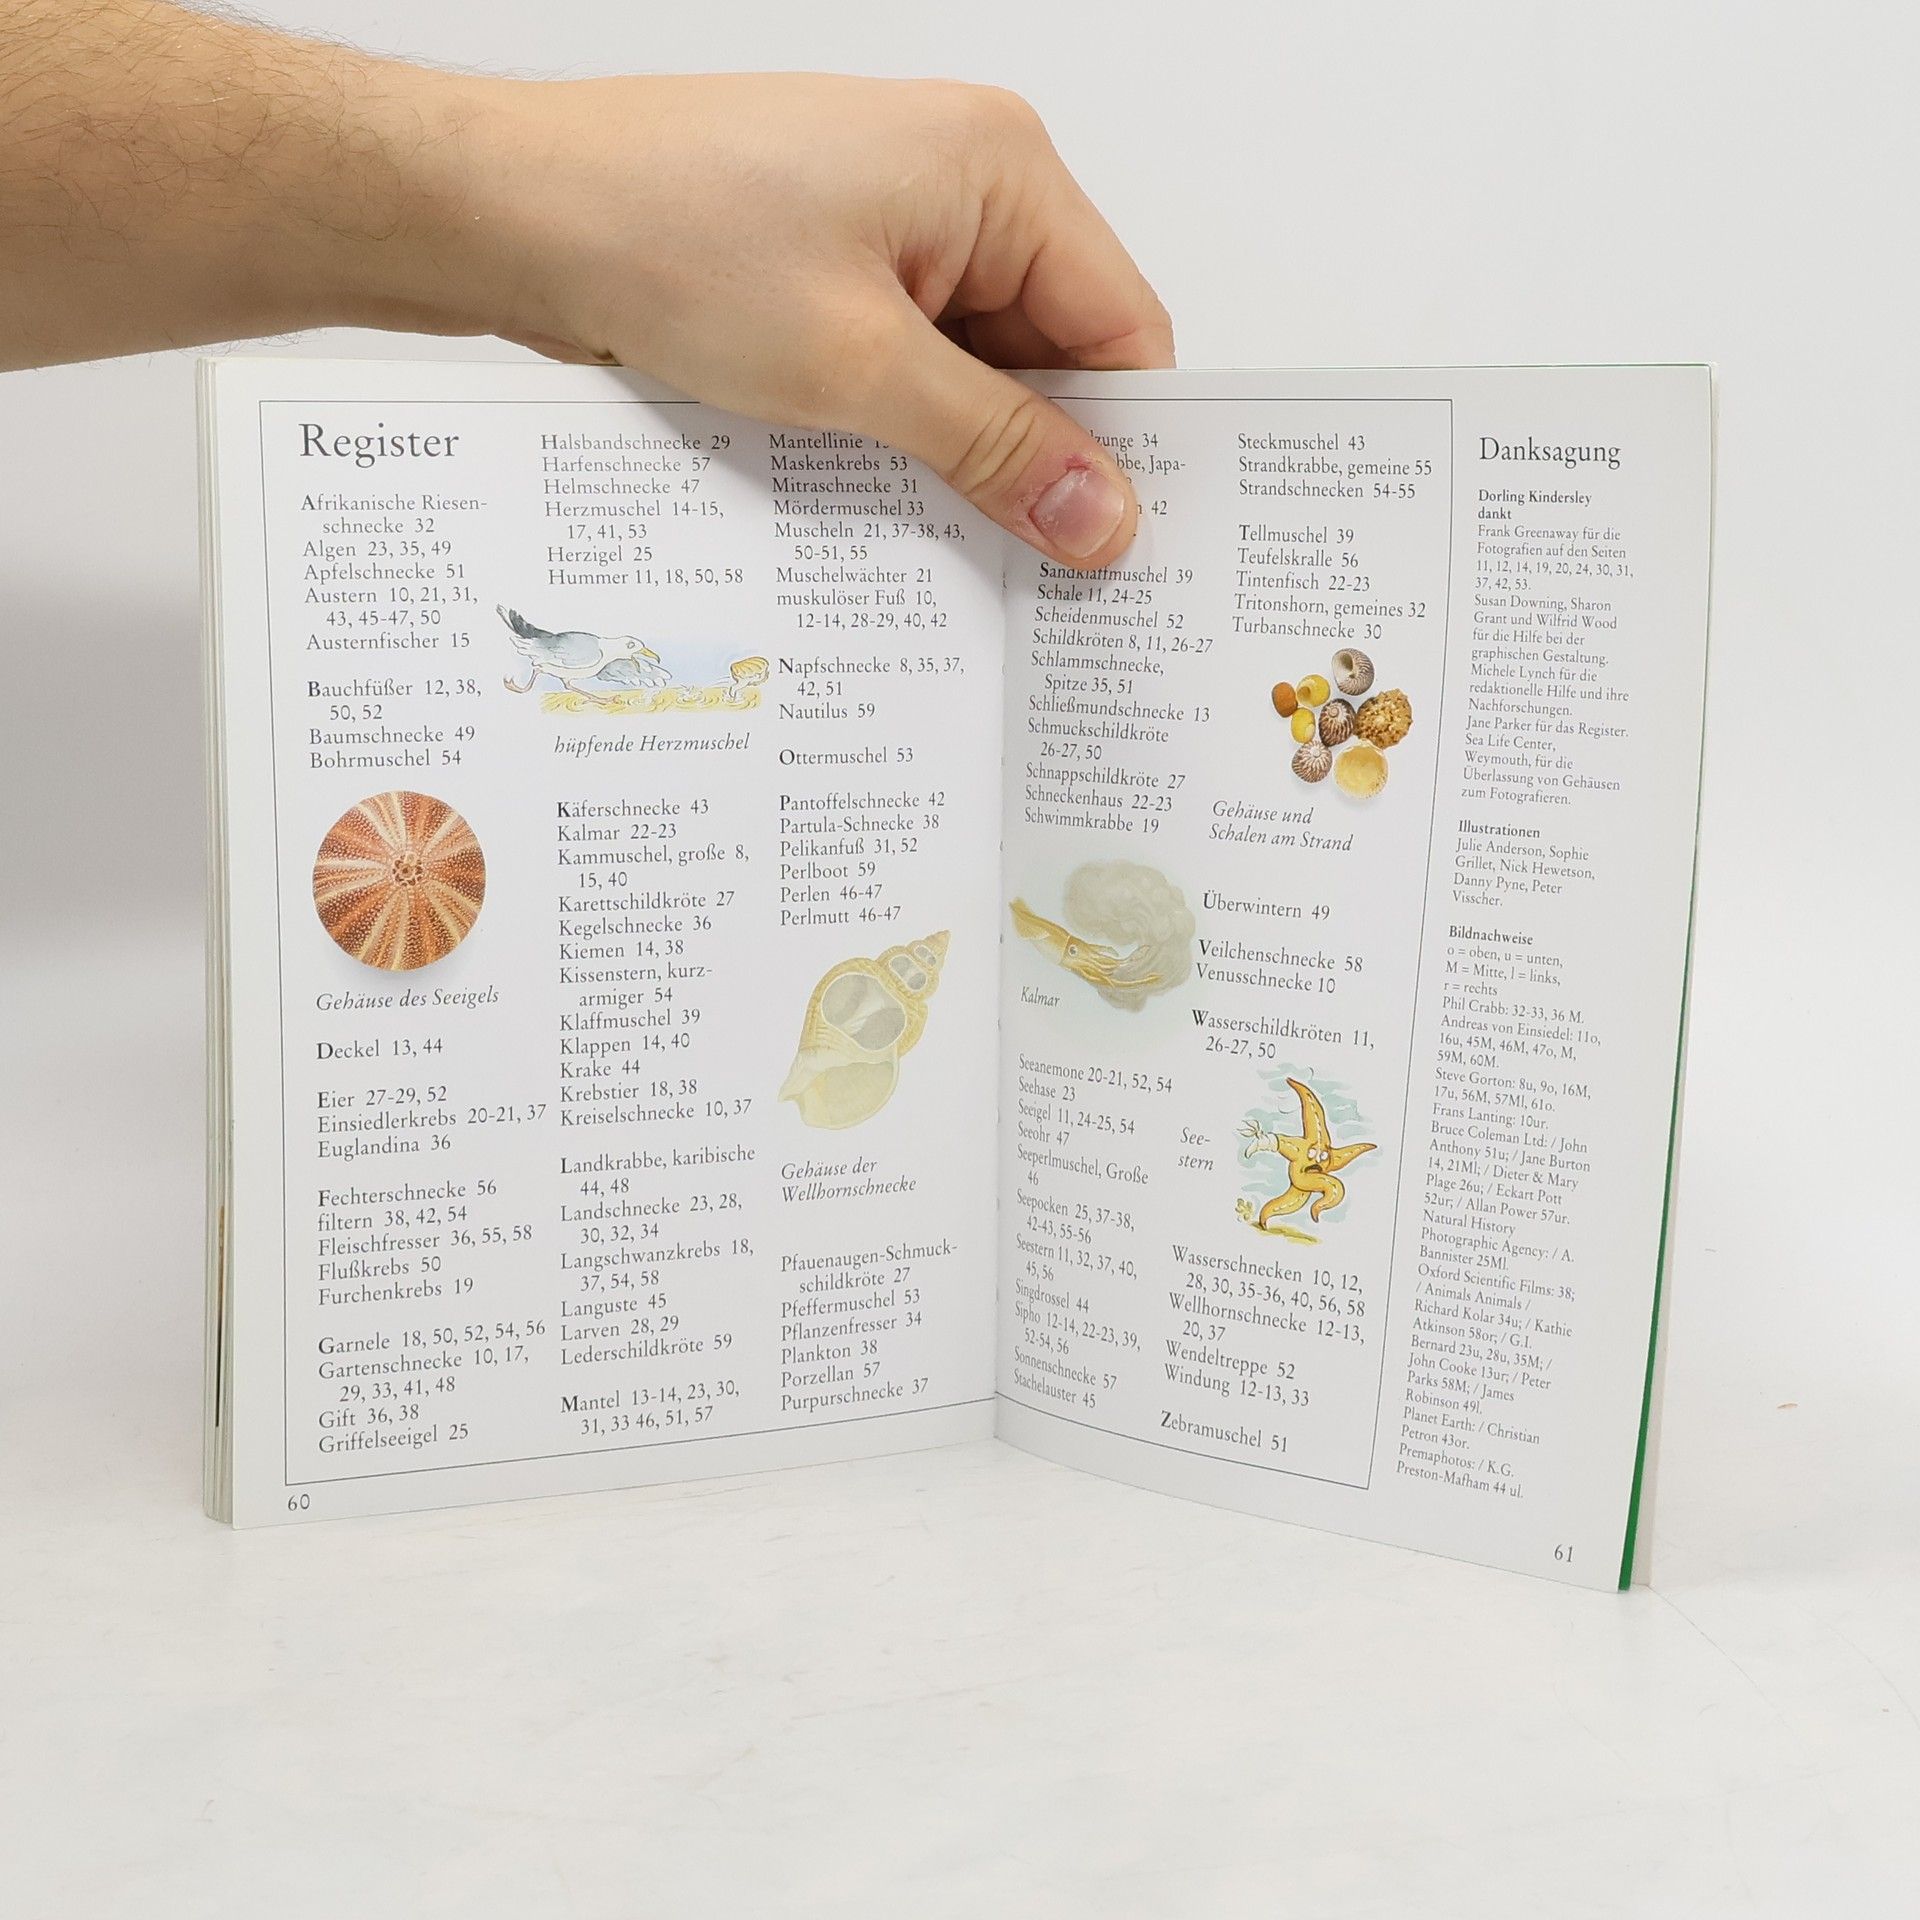 Register
Afrikanische Riesen-
schnecke 32
Algen 23, 35, 49
Apfelschnecke 51
Austern 10, 21, 31,
43, 45-47, 50
Austernfischer 15
Bauchfüßer 12, 38,
50, 52
Baumschnecke 49
Bohrmuschel 54
Gehäuse des Seeigels
Deckel 13, 44
Eier 27-29, 52
Einsiedlerkrebs 20-21, 37
Euglandina 36
Fechterschnecke 56
filtern 38, 42, 54
Fleischfresser 36, 55, 58
Flußkrebs 50
Furchenkrebs 19
Garnele 18, 50, 52, 54, 56
Gartenschnecke 10, 17,
29, 33, 41, 48
Gift 36, 38
Griffelseeigel 25
60
Halsbandschnecke 29
Harfenschnecke 57
Helmschnecke 47
Herzmuschel 14-15,
17, 41, 53
Herzigel 25
Hummer 11, 18, 50, 58
hüpfende Herzmuschel
Käferschnecke 43
Kalmar 22-23
Kammuschel, große 8,
15, 40
Karettschildkröte 27
Kegelschnecke 36
Kiemen 14, 38
Kissenstern, kurz-
armiger 54
Klaffmuschel 39
Klappen 14, 40
Krake 44
Krebstier 18, 38
Kreiselschnecke 10, 37
Landkrabbe, karibische
44, 48
Landschnecke 23, 28,
30, 32, 34
Langschwanzkrebs 18,
37, 54, 58
Languste 45
Larven 28, 29
Lederschildkröte 59
Mantel 13-14, 23, 30,
31, 33 46, 51, 57
Mantellinie
Maskenkrebs 53
Mitraschnecke 31
Mördermuschel 33
Muscheln 21, 37-38, 43,
50-51, 55
Muschelwächter 21
muskulöser Fuß 10,
12-14, 28-29, 40, 42
Napfschnecke 8, 35, 37,
42, 51
Nautilus 59
Ottermuschel 53
Pantoffelschnecke 42
Partula-Schnecke 38
Pelikanfuß 31, 52
Perlboot 59
Perlen 46-47
Perlmutt 46-47
Gehäuse der
Wellhornschnecke
Pfauenaugen-Schmuck-
schildkröte 27
Pfeffermuschel 53
Pflanzenfresser 34
Plankton 38
Porzellan 57
Purpurschnecke 37
34
Japa-
42
Sandklaffmuschel 39
Schale 11, 24-25
Scheidenmuschel 52
Schildkröten 8, 11, 26-27
Schlammschnecke,
Spitze 35, 51
Schließmundschnecke 13
Schmuckschildkröte
26-27, 50
Schnappschildkröte 27
Schneckenhaus 22-23
Schwimmkrabbe 19
Kalmar
Seeanemone 20-21, 52, 54
Seehase 23
Seeigel 11, 24-25, 54
Seeohr 47
Seeperlmuschel, Große
46
Seepocken 25, 37-38,
42-43, 55-56
Seestern 11, 32, 37, 40,
45, 56
Singdrossel 44
Sipho 12-14, 22-23, 39,
52-54, 56
Sonnenschnecke 57
Stachelauster 45
Steckmuschel 43
Strandkrabbe, gemeine 55
Strandschnecken 54-55
Tellmuschel 39
Teufelskralle 56
Tintenfisch 22-23
Tritonshorn, gemeines 32
Turbanschnecke 30
Gehäuse und
Schalen am Strand
Überwintern 49
Veilchenschnecke 58
Venusschnecke 10
Wasserschildkröten 11,
26-27, 50
See-
stern
Wasserschnecken 10, 12,
28, 30, 35-36, 40, 56, 58
Wellhornschnecke 12-13,
20, 37
Wendeltreppe 52
Windung 12-13, 33
Zebramuschel 51
Danksagung
Dorling Kindersley
dankt
Frank Greenaway für die
Fotografien auf den Seiten
11, 12, 14, 19, 20, 24, 30, 31,
37, 42, 53.
Susan Downing, Sharon
Grant und Wilfrid Wood
für die Hilfe bei der
graphischen Gestaltung.
Michele Lynch für die
redaktionelle Hilfe und ihre
Nachforschungen.
Jane Parker für das Register.
Sea Life Center,
Weymouth, für die
Überlassung von Gehäusen
zum Fotografieren.
Illustrationen
Julie Anderson, Sophie
Grillet, Nick Hewetson,
Danny Pyne, Peter
Visscher.
Bildnachweise
o = oben, u = unten,
M = Mitte, l = links,
r = rechts
Phil Crabb: 32-33, 36 M.
Andreas von Einsiedel: 11o,
16u, 45M, 46M, 47o, M,
59M, 60M.
Steve Gorton: 8u, 9o, 16M,
17u, 56M, 57Ml, 61o.
Frans Lanting: 10ur.
Bruce Coleman Ltd: / John
Anthony 51u; / Jane Burton
14, 21Ml; / Dieter & Mary
Plage 26u; / Eckart Pott
52ur; / Allan Power 57ur.
Natural History
Photographic Agency: / A.
Bannister 25Ml.
Oxford Scientific Films: 38;
/ Animals Animals /
Richard Kolar 34u; / Kathie
Atkinson 58or; / G.I.
Bernard 23u, 28u, 35M; /
John Cooke 13ur; / Peter
Parks 58M; / James
Robinson 49l.
Planet Earth: / Christian
Petron 43or.
Premaphotos: / K.G.
Preston-Mafham 44 ul.
61